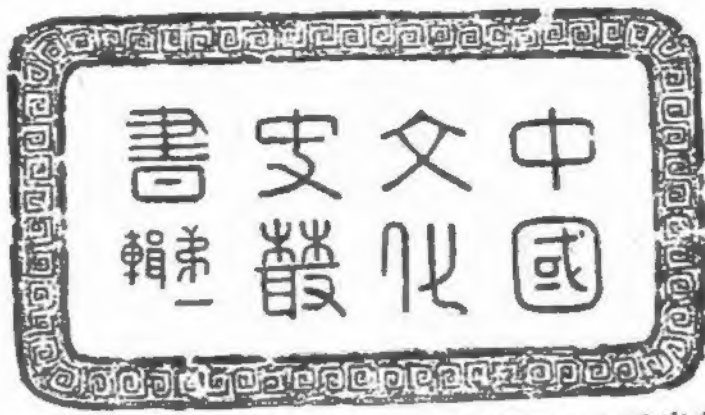 中國
文化
史叢
書
第一
輯